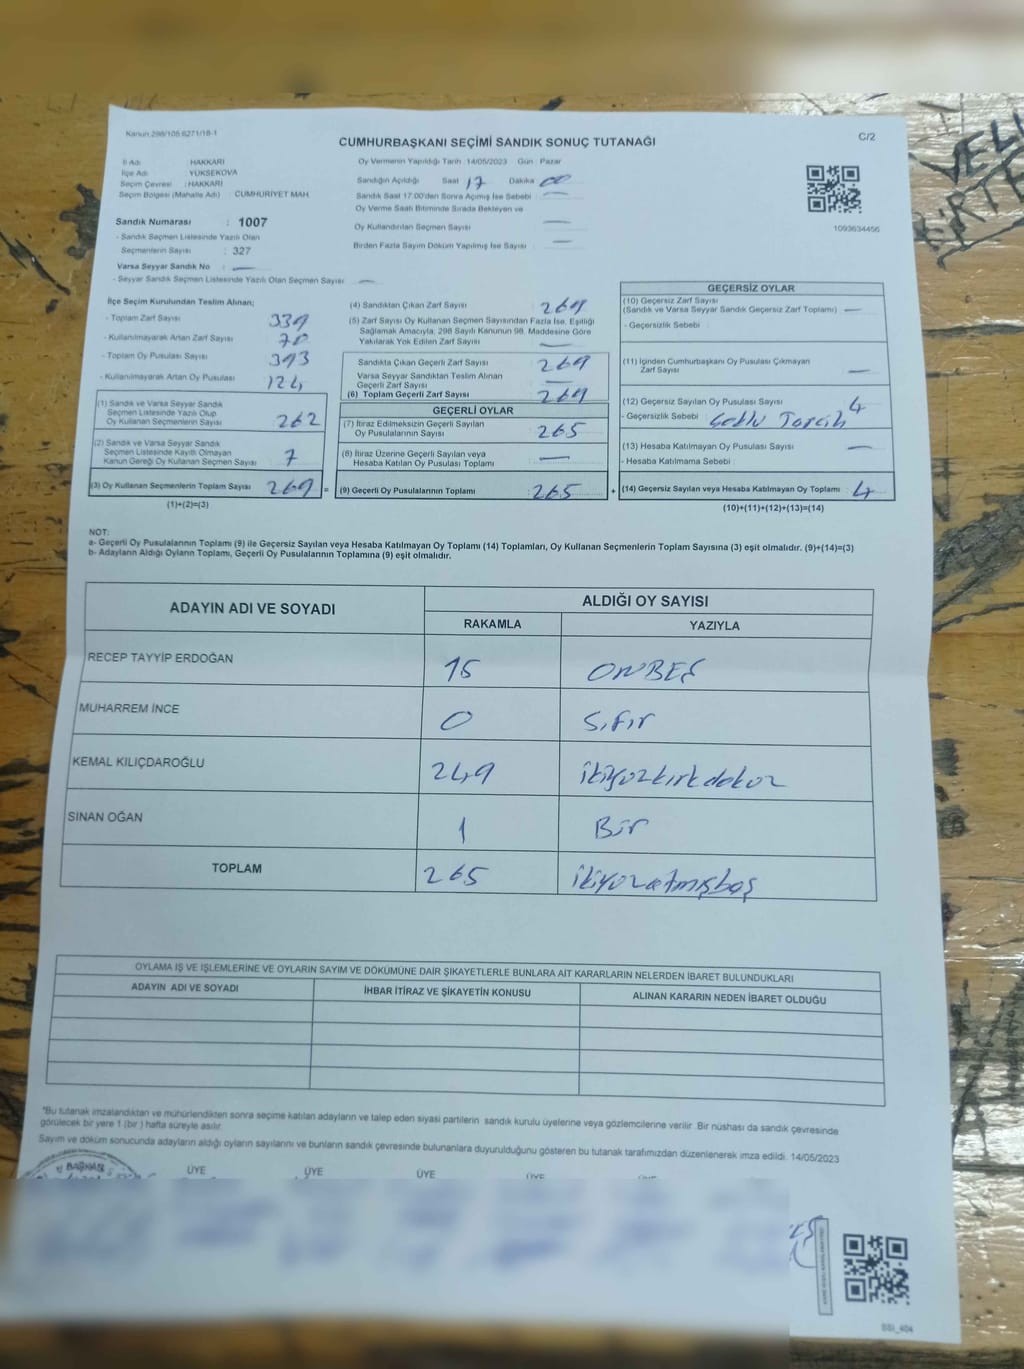 Kanun 298/105 6271/18-1
C/2
CUMHURBAŞKANI SEÇİMİ SANDIK SONUÇ TUTANAĞI
İl Adı : HAKKARİ
İlçe Adı : YÜKSEKOVA
Seçim Çevresi : HAKKARİ
Seçim Bölgesi (Mahalle Adı) : CUMHURİYET MAH.
Sandık Numarası : 1007
- Sandık Seçmen Listesinde Yazılı Olan
Seçmenlerin Sayısı : 327
Varsa Seyyar Sandık No : —
- Seyyar Sandık Seçmen Listesinde Yazılı Olan Seçmen Sayısı : —
Oy Vermenin Yapıldığı Tarih 14/05/2023 Gün Pazar
Sandığın Açıldığı Saat 17 Dakika 00
Sandık Saat 17.00'den Sonra Açılmış İse Sebebi : —
Oy Verme Saati Bitiminde Sırada Bekleyen ve
Oy Kullandırılan Seçmen Sayısı : —
Birden Fazla Sayım Döküm Yapılmış İse Sayısı : —
1093634456
İlçe Seçim Kurulundan Teslim Alınan;
- Toplam Zarf Sayısı 339
- Kullanılmayarak Artan Zarf Sayısı 70
- Toplam Oy Pusulası Sayısı 393
- Kullanılmayarak Artan Oy Pusulası 124
(1) Sandık ve Varsa Seyyar Sandık
Seçmen Listesinde Yazılı Olup
Oy Kullanan Seçmenlerin Sayısı 262
(2) Sandık ve Varsa Seyyar Sandık
Seçmen Listesinde Kayıtlı Olmayan
Kanun Gereği Oy Kullanan Seçmen Sayısı 7
(3) Oy Kullanan Seçmenlerin Toplam Sayısı 269 =
(1)+(2)=(3)
(4) Sandıktan Çıkan Zarf Sayısı 269
(5) Zarf Sayısı Oy Kullanan Seçmen Sayısından Fazla İse, Eşitliği
Sağlamak Amacıyla, 298 Sayılı Kanunun 98. Maddesine Göre
Yakılarak Yok Edilen Zarf Sayısı —
Sandıkta Çıkan Geçerli Zarf Sayısı 269
Varsa Seyyar Sandıktan Teslim Alınan
Geçerli Zarf Sayısı —
(6) Toplam Geçerli Zarf Sayısı 269
GEÇERLİ OYLAR
(7) İtiraz Edilmeksizin Geçerli Sayılan
Oy Pusulalarının Sayısı 265
(8) İtiraz Üzerine Geçerli Sayılan veya
Hesaba Katılan Oy Pusulası Toplamı —
(9) Geçerli Oy Pusulalarının Toplamı 265 +
GEÇERSİZ OYLAR
(10) Geçersiz Zarf Sayısı
(Sandık ve Varsa Seyyar Sandık Geçersiz Zarf Toplamı) —
- Geçersizlik Sebebi :
(11) İçinden Cumhurbaşkanı Oy Pusulası Çıkmayan
Zarf Sayısı —
(12) Geçersiz Sayılan Oy Pusulası Sayısı 4
- Geçersizlik Sebebi :
(13) Hesaba Katılmayan Oy Pusulası Sayısı —
- Hesaba Katılmama Sebebi :
(14) Geçersiz Sayılan veya Hesaba Katılmayan Oy Toplamı 4
(10)+(11)+(12)+(13)=(14)
NOT:
a- Geçerli Oy Pusulalarının Toplamı (9) ile Geçersiz Sayılan veya Hesaba Katılmayan Oy Toplamı (14) Toplamları, Oy Kullanan Seçmenlerin Toplam Sayısına (3) eşit olmalıdır. (9)+(14)=(3)
b- Adayların Aldığı Oyların Toplamı, Geçerli Oy Pusulalarının Toplamına (9) eşit olmalıdır.
ADAYIN ADI VE SOYADI
ALDIĞI OY SAYISI
RAKAMLA YAZIYLA
RECEP TAYYİP ERDOĞAN 15 ONBEŞ
MUHARREM İNCE 0 Sıfır
KEMAL KILIÇDAROĞLU 249 ikiyüzkırkdokuz
SİNAN OĞAN 1 Bir
TOPLAM 265 ikiyüzatmışbeş
OYLAMA İŞ VE İŞLEMLERİNE VE OYLARIN SAYIM VE DÖKÜMÜNE DAİR ŞİKAYETLERLE BUNLARA AİT KARARLARIN NELERDEN İBARET BULUNDUKLARI
ADAYIN ADI VE SOYADI İHBAR İTİRAZ VE ŞİKAYETİN KONUSU ALINAN KARARIN NEDEN İBARET OLDUĞU
*Bu tutanak imzalandıktan ve mühürlendikten sonra seçime katılan adayların ve talep eden siyasi partilerin sandık kurulu üyelerine veya gözlemcilerine verilir. Bir nüshası da sandık çevresinde
görülecek bir yere 1 (bir ) hafta süreyle asılır.
Sayım ve döküm sonucunda adayların aldığı oyların sayılarını ve bunların sandık çevresinde bulunanlara duyurulduğunu gösteren bu tutanak tarafımızdan düzenlenerek imza edildi. 14/05/2023
BAŞKAN ÜYE ÜYE ÜYE ÜYE